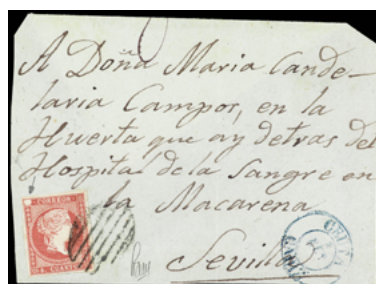 A Doña Maria Cande-
laria Campos, en la
Huerta que ay detras del
Hospital de la Sangre en
la Macarena
Sevilla
CORREOS
4 CUARTOS
CEUTA